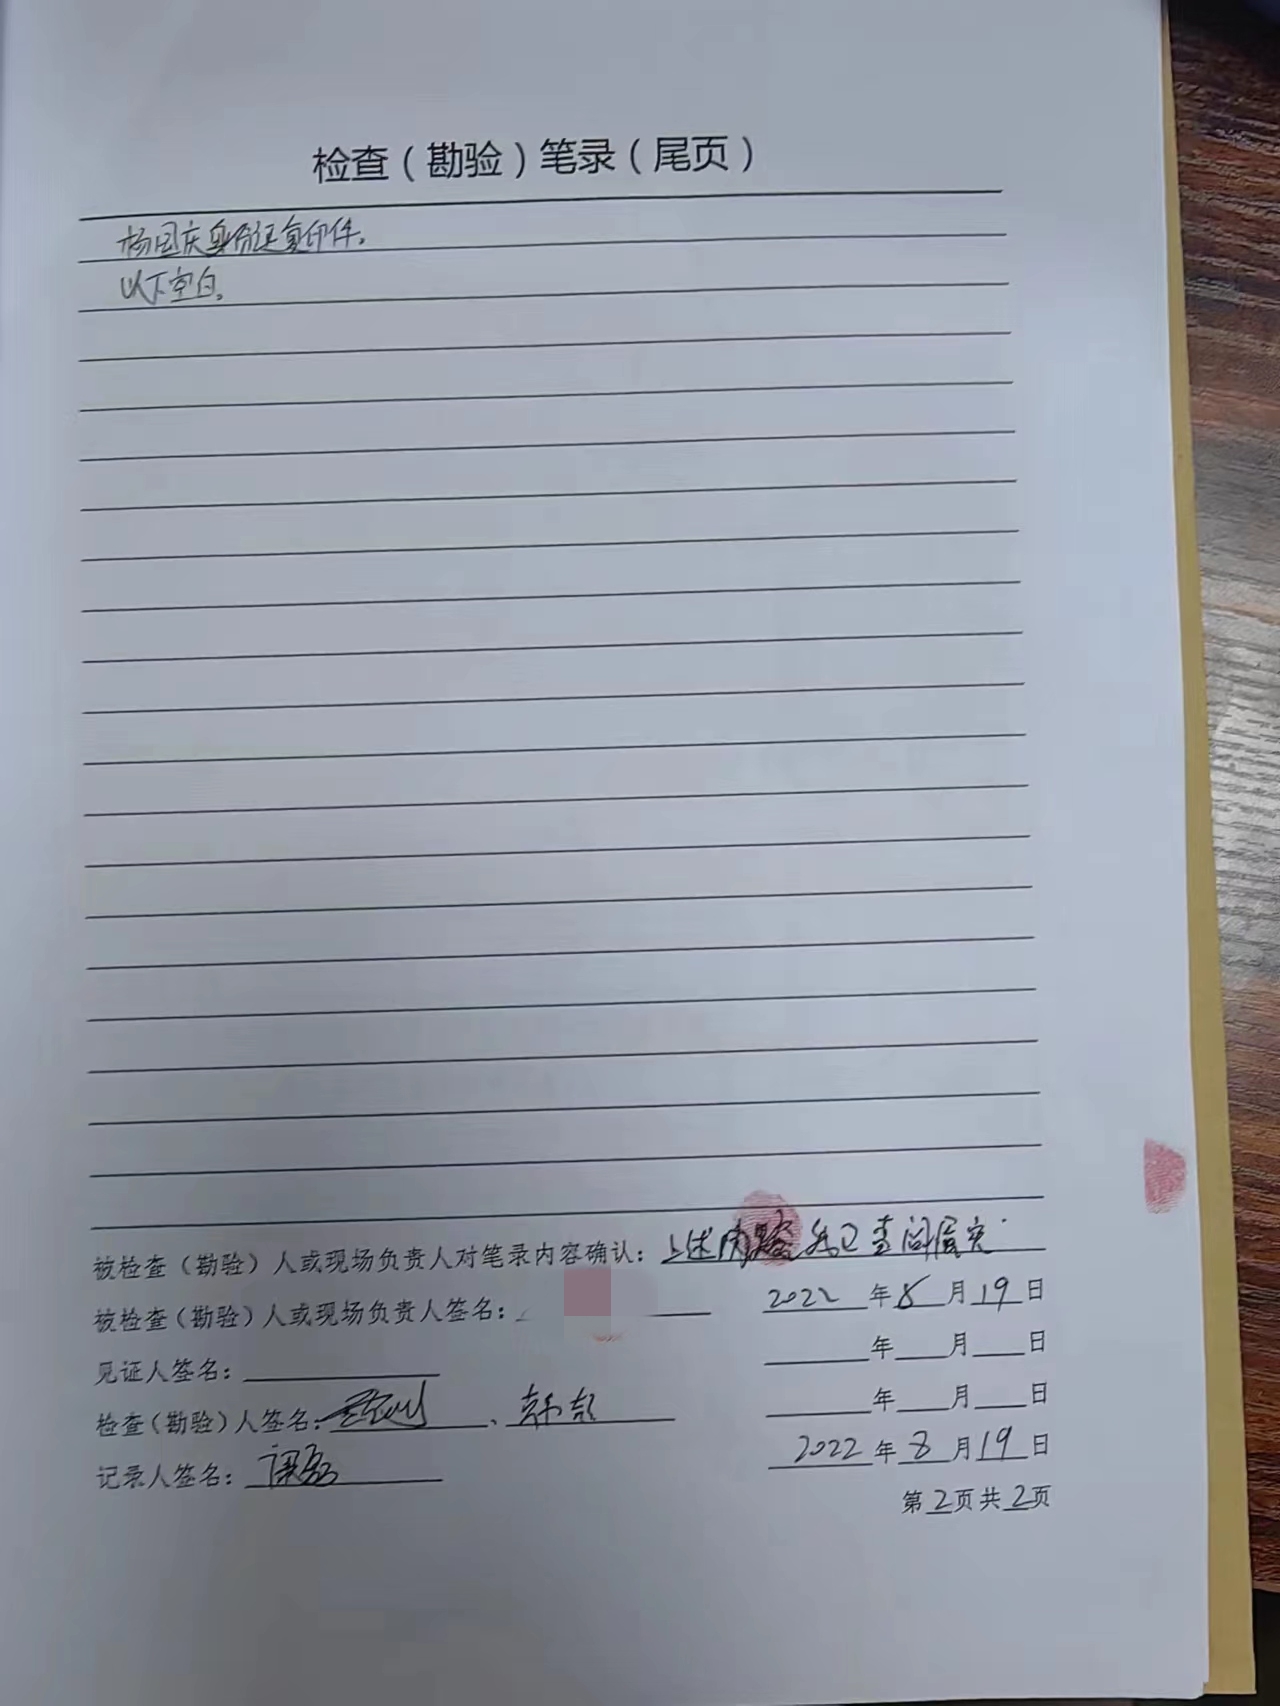 检查（勘验）笔录（尾页）
杨国庆身份证复印件。
以下空白。
被检查（勘验）人或现场负责人对笔录内容确认：上述内容我已查阅属实
被检查（勘验）人或现场负责人签名： 2022年8月19日
见证人签名： 年 月 日
检查（勘验）人签名： 、 年 月 日
记录人签名： 2022年8月19日
第2页共2页